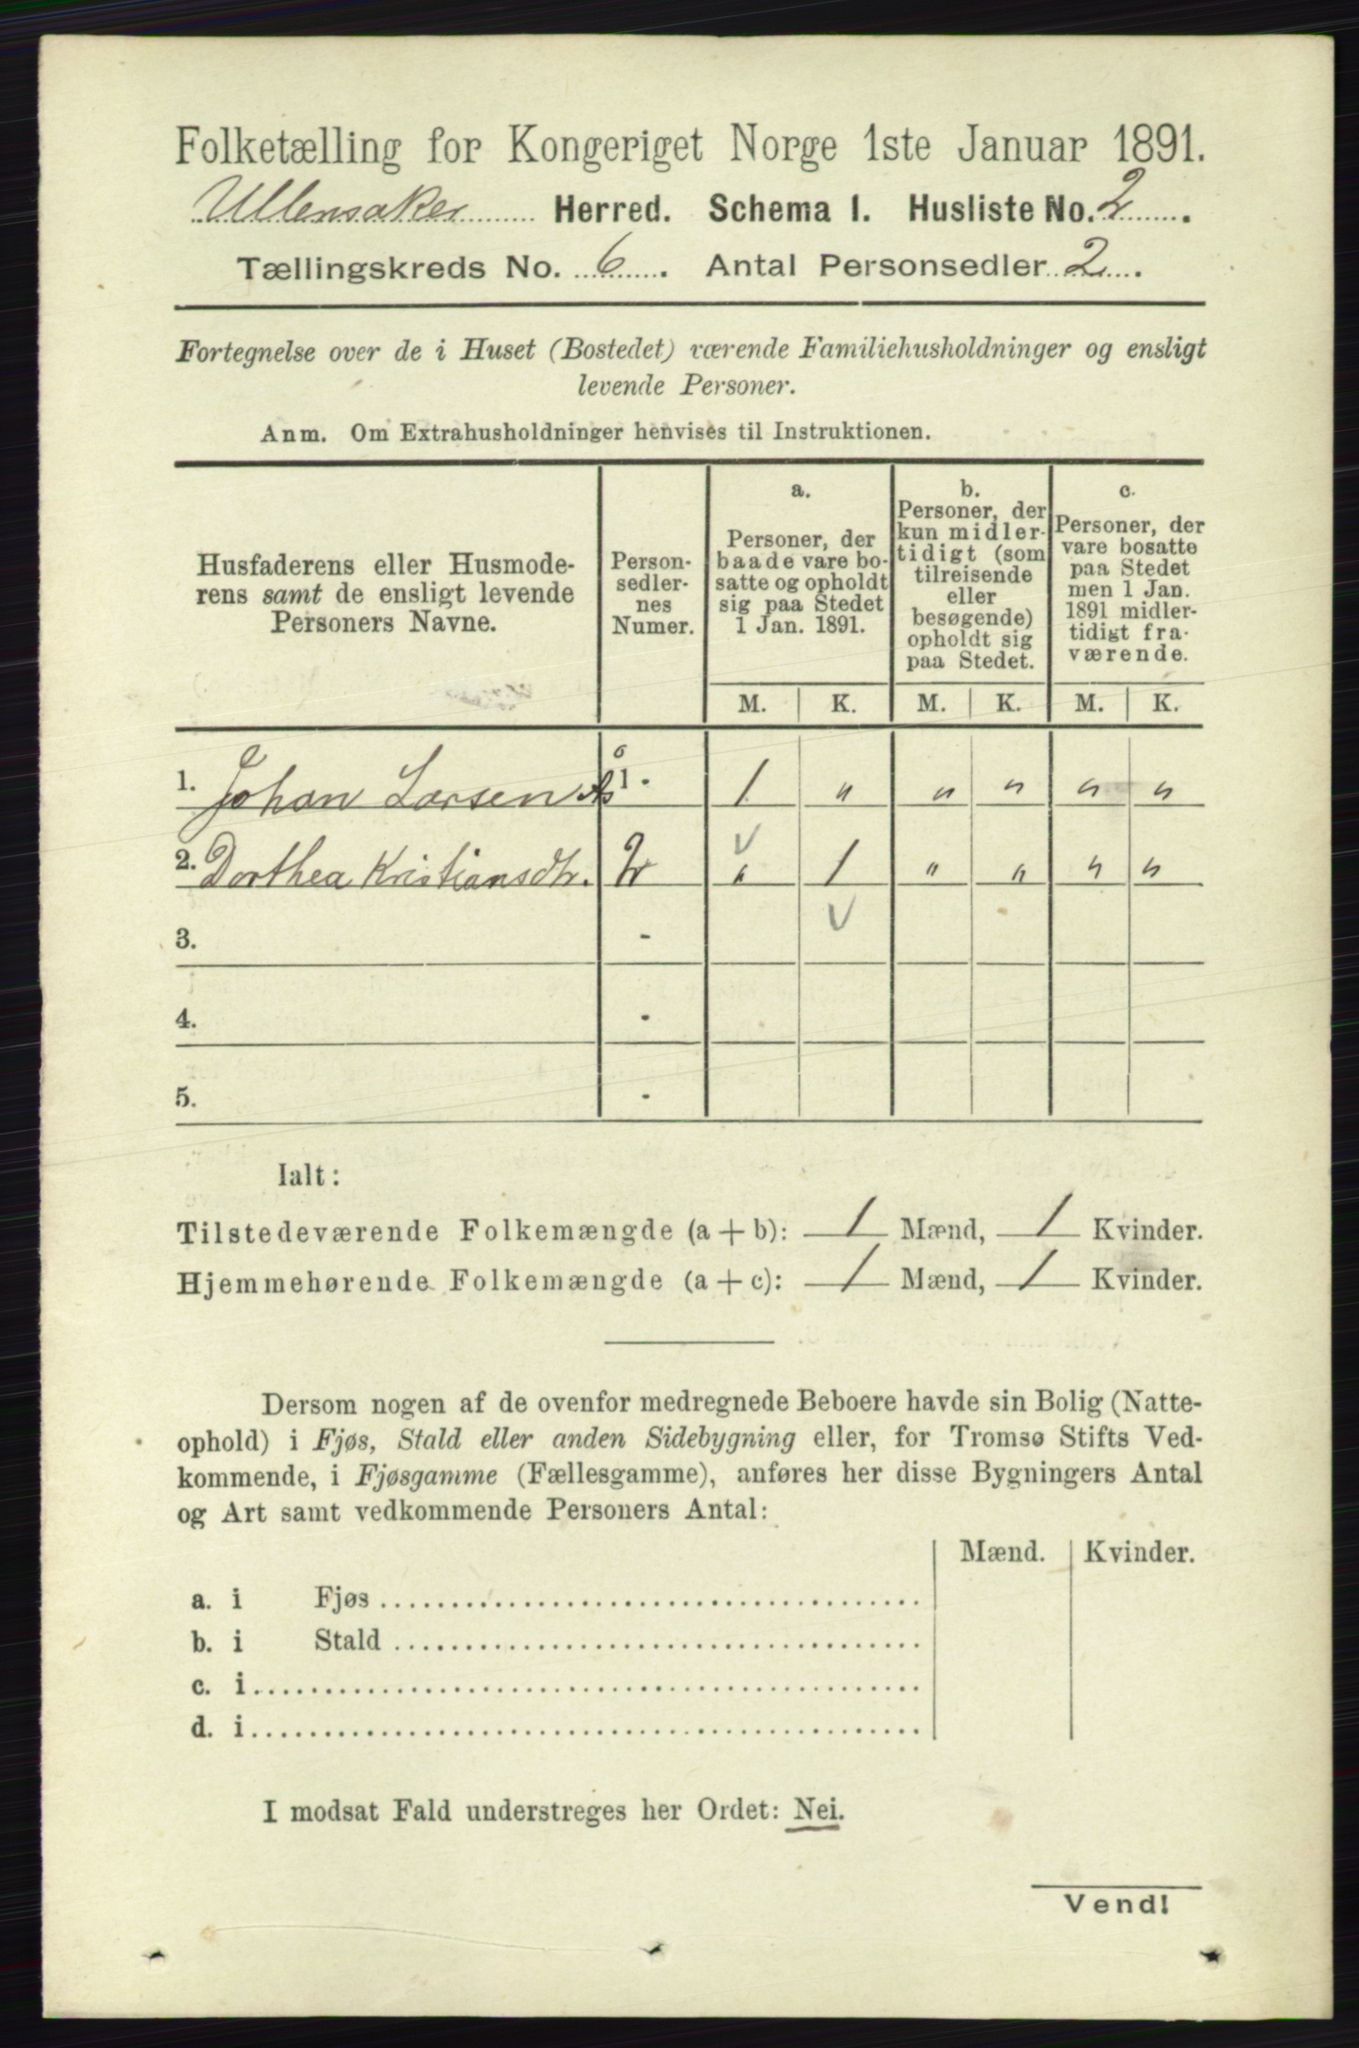 Folketælling for Kongeriget Norge 1ste Januar 1891.
Ullensaker Herred. Schema I. Husliste No. 2.
Tællingskreds No. 6. Antal Personsedler 2.
Fortegnelse over de i Huset (Bostedet) værende Familiehusholdninger og ensligt
levende Personer.
Anm. Om Extrahusholdninger henvises til Instruktionen.
Husfaderens eller Husmode-
rens samt de ensligt levende
Personers Navne.
Person-
sedler-
nes
Numer.
a.
Personer, der
baade vare bo-
satte og opholdt
sig paa Stedet
1 Jan. 1891.
b.
Personer, der
kun midler-
tidigt (som
tilreisende
eller
besøgende)
opholdt sig
paa Stedet.
c.
Personer, der
vare bosatte
paa Stedet
men 1 Jan.
1891 midler-
tidigt fra-
værende.
M. K. M. K. M. K.
1. Johan Larsen Ås 1 - 1 " " " " "
2. Dorthea Kristiansdtr. 2 " 1 " " " "
3. -
4. -
5. -
Ialt:
Tilstedeværende Folkemængde (a + b): 1 Mænd, 1 Kvinder.
Hjemmehørende Folkemængde (a + c): 1 Mænd, 1 Kvinder.
Dersom nogen af de ovenfor medregnede Beboere havde sin Bolig (Natte-
ophold) i Fjøs, Stald eller anden Sidebygning eller, for Tromsø Stifts Ved-
kommende, i Fjøsgamme (Fællesgamme), anføres her disse Bygningers Antal
og Art samt vedkommende Personers Antal:
Mænd. Kvinder.
a. i Fjøs
b. i Stald
c. i
d. i
I modsat Fald understreges her Ordet: Nei.
Vend!